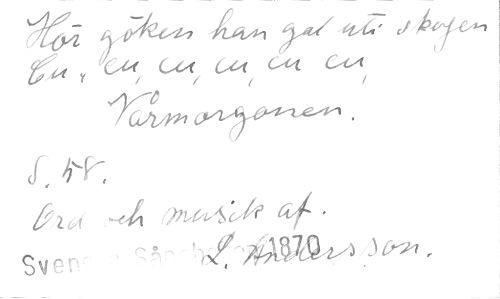 Hör göken han gal uti skogen
Cu, cu, cu, cu, cu cu,
Vårmorgonen.
S. 58.
Ord och musik af.
L. Andersson.
Svenska 1870